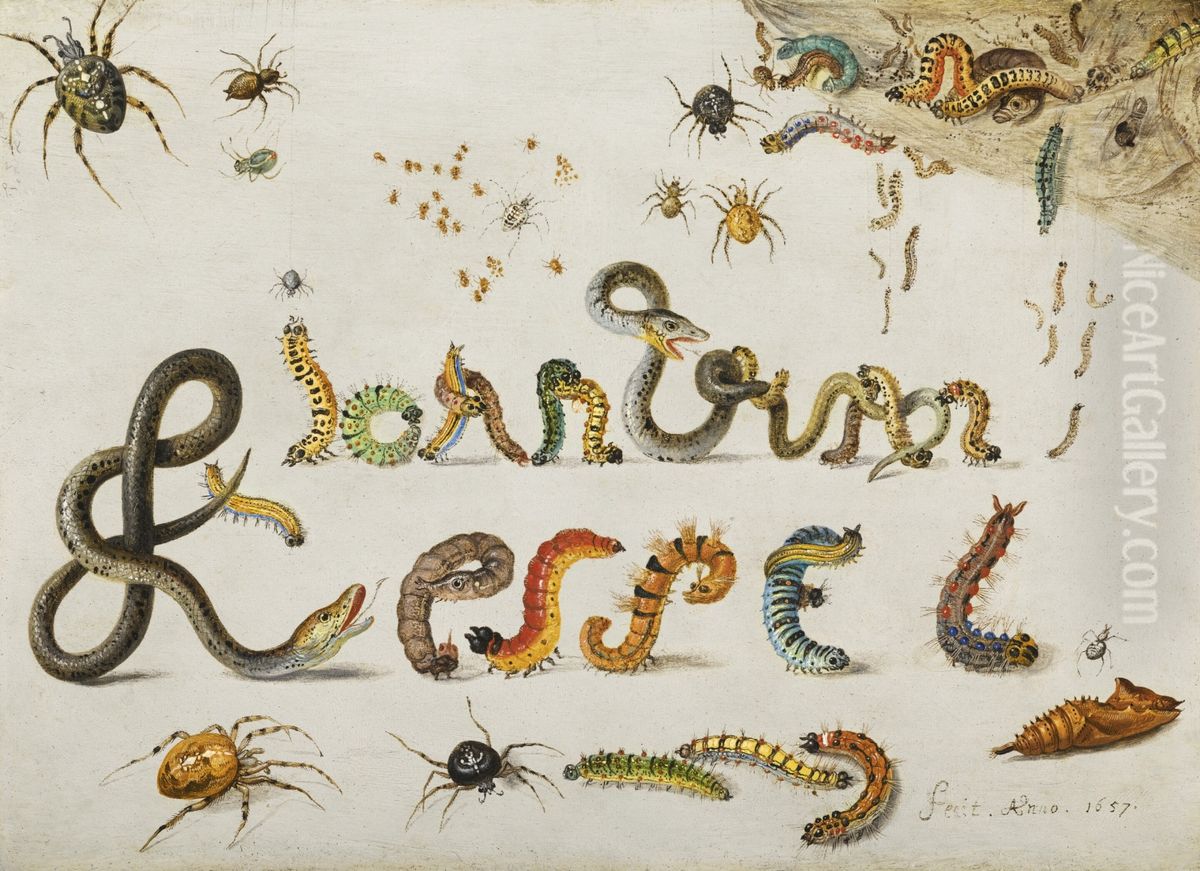 Joan van
Kessel
Fecit. Anno. 1657.
NiceArtGallery.com